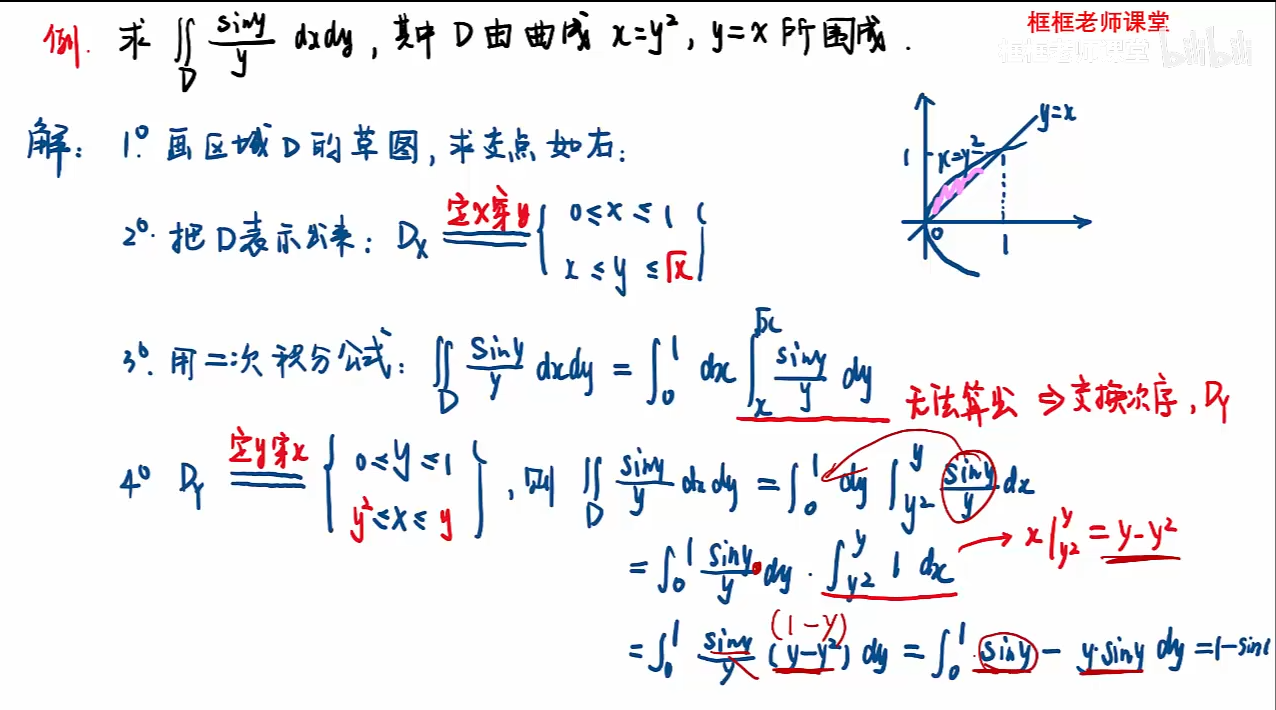 框框老师课堂
框框老师课堂 bilibili
例. 求 ∬_D siny/y dxdy, 其中 D 由曲线 x=y², y=x 所围成.
解: 1°. 画区域 D 的草图, 求交点如右:
y=x
x=y²
1
0
1
2°. 把 D 表示出来: D_X 定x穿y { 0≤x≤1 x≤y≤√x }
3°. 用二次积分公式: ∬_D siny/y dxdy = ∫_0^1 dx ∫_x^√x siny/y dy
无法算出 ⇒ 交换次序, D_Y
4° D_Y 定y穿x { 0≤y≤1 y²≤x≤y }, 则 ∬_D siny/y dxdy = ∫_0^1 dy ∫_{y²}^y siny/y dx
= ∫_0^1 siny/y · dy · ∫_{y²}^y 1 dx → x|_{y²}^y = y-y²
(1-y)
= ∫_0^1 siny/y (y-y²) dy = ∫_0^1 siny - y·siny dy = 1-sin1